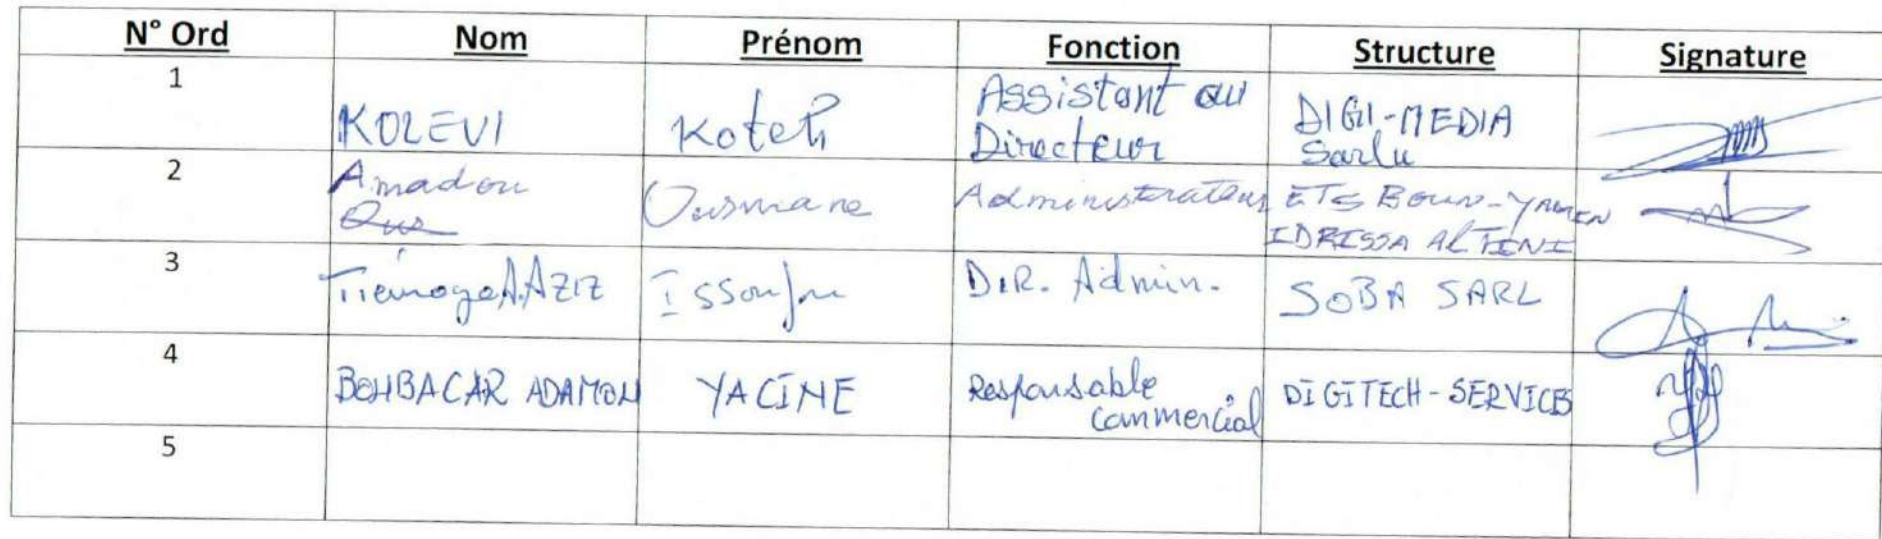 N° Ord Nom Prénom Fonction Structure Signature
1 KOLEVI Koteh Assistant au Directeur DIGI-MEDIA Sarlu
2 Amadou Ousmane Administrateur ETS BOUN-YAMEN IDRISSA ALTINI
3 A.AZIZ Issoufou DIR. Admin. SOBA SARL
4 BOUBACAR ADAMOU YACINE Responsable commercial DIGITECH-SERVICES
5